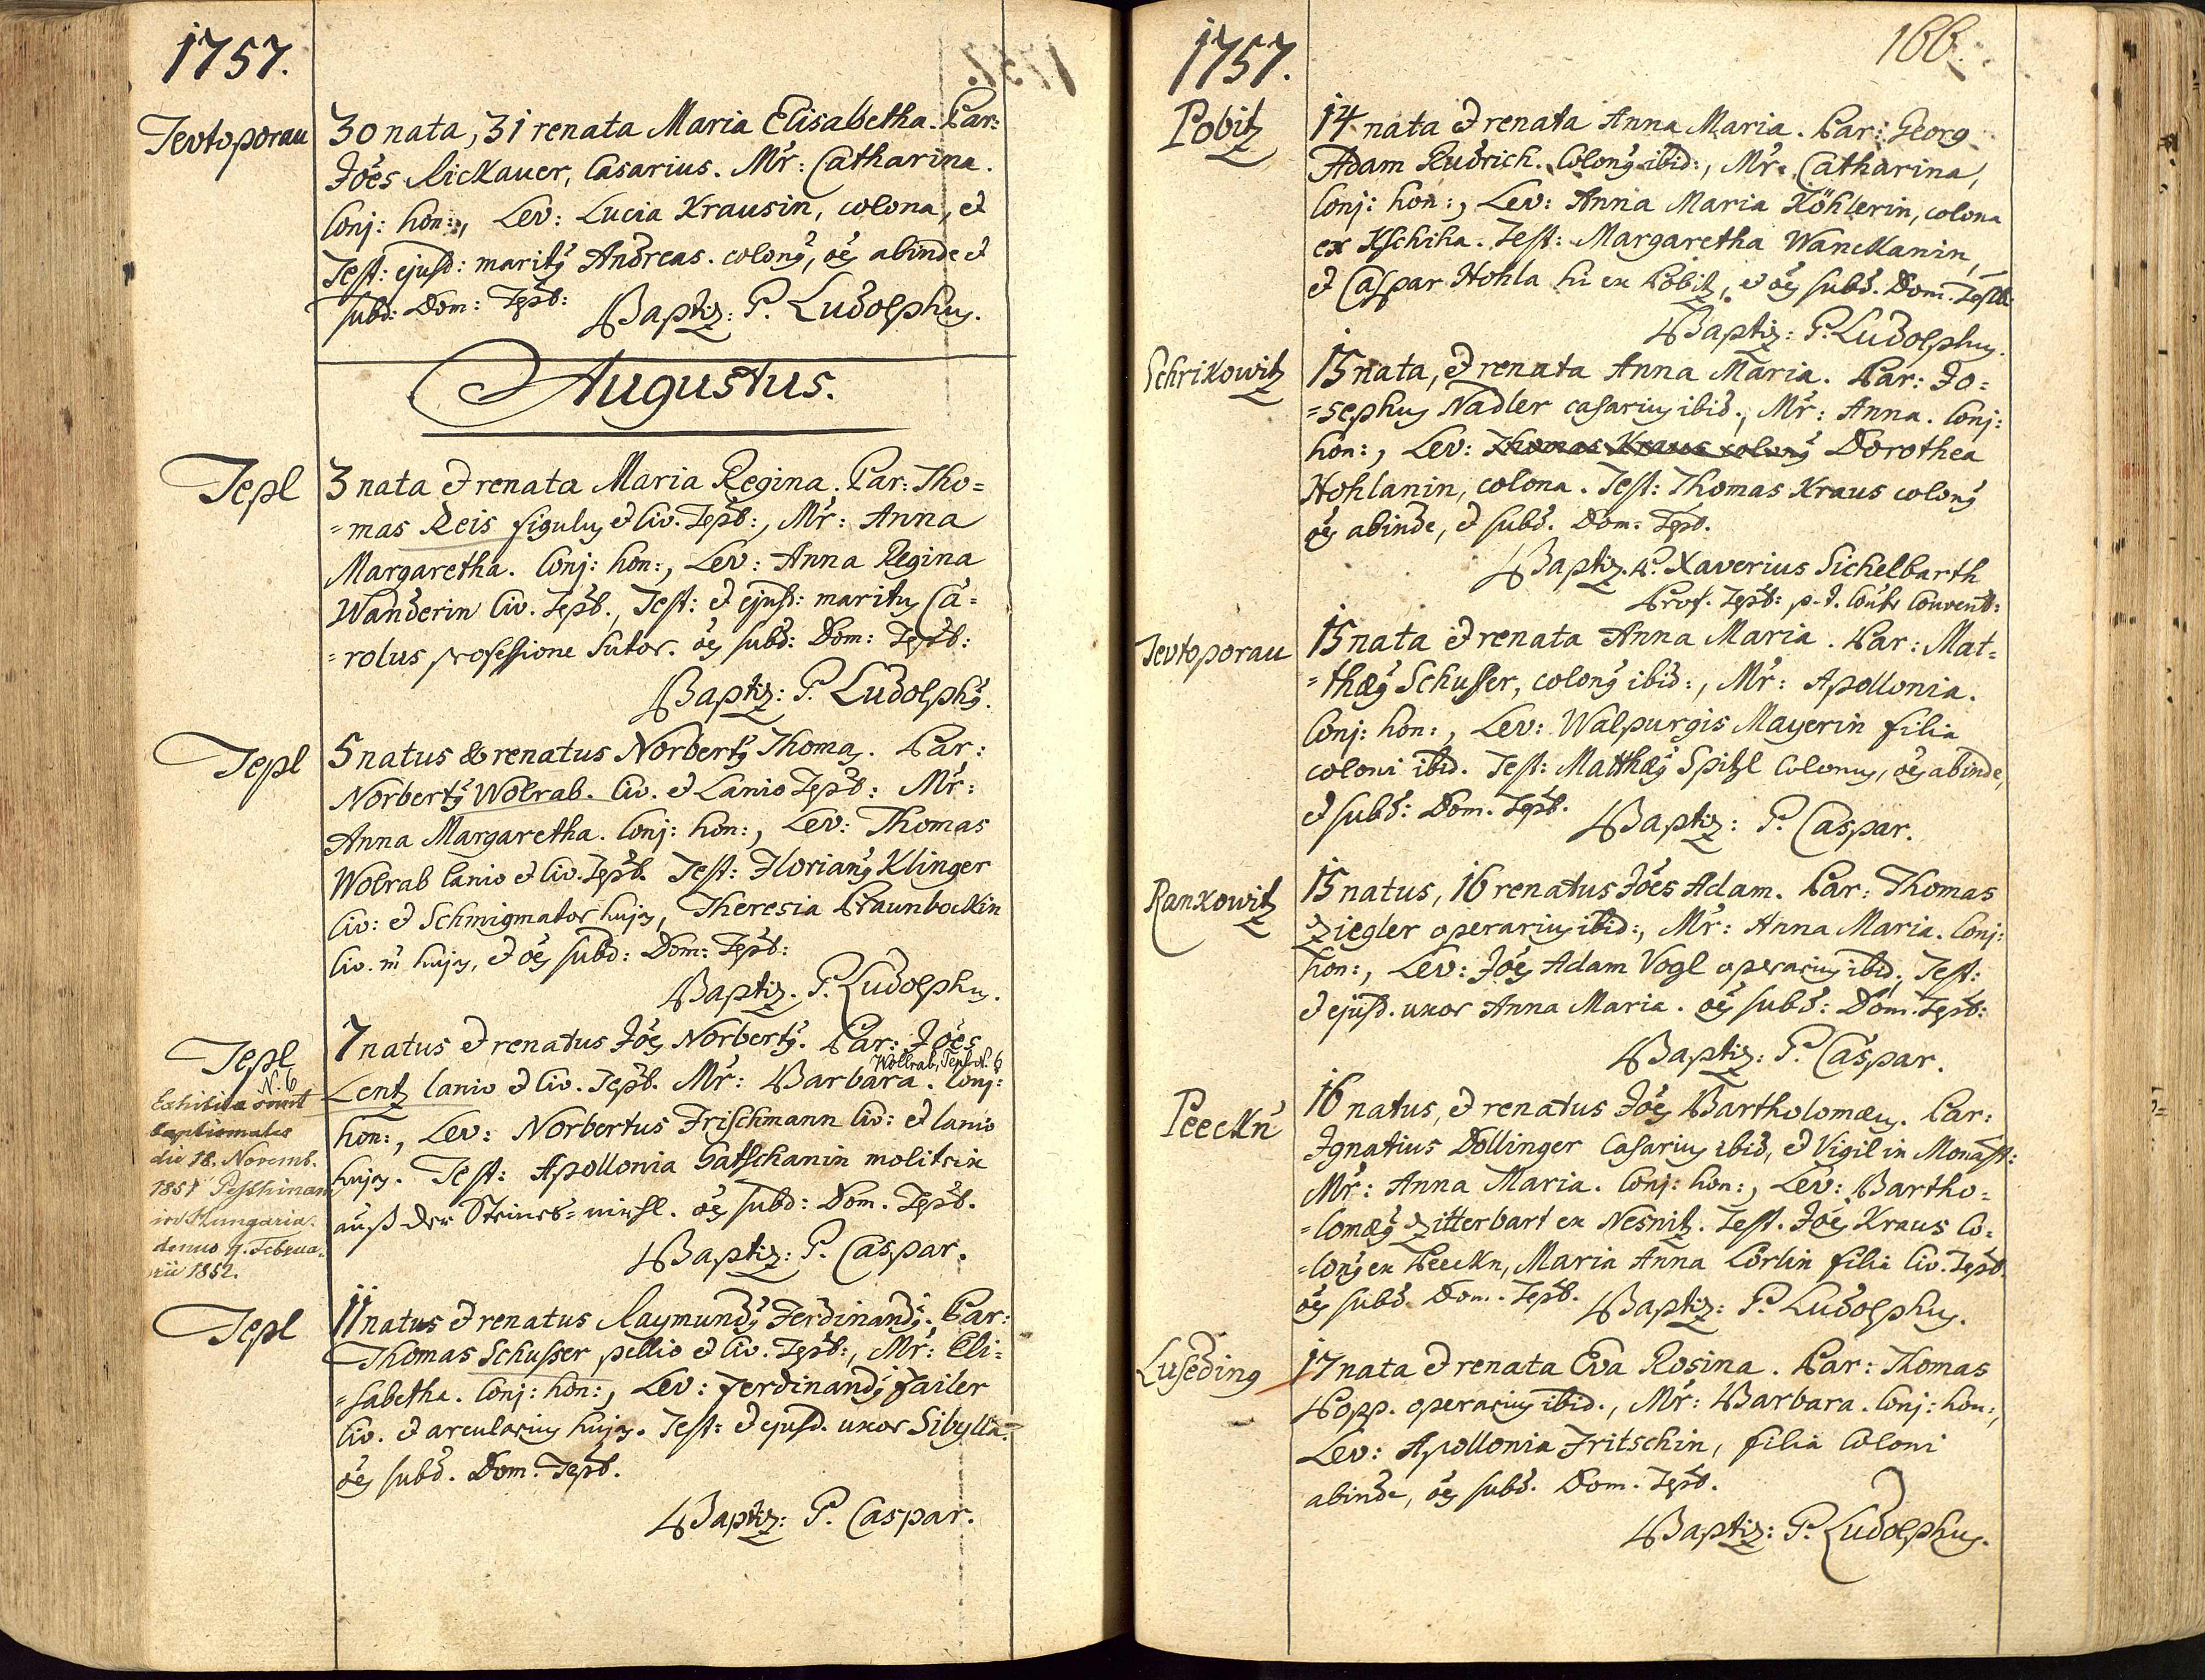 1757.
Tevtoporau
30 nata, 31 renata Maria Elisabetha. Par:
Joes Rickauer, Casarius. Mr: Catharina.
Conj: hon:, Lev: Lucia Krausin, colona, et
Test: ejusd: maritg Andreas. colong, oes abinde et
subd: Dom: Tepl:
Baptiz: P. Ludolphus.
Augustus.
Tepl
3 nata et renata Maria Regina. Par: Tho=
=mas Reis figulus et Civ. Tepl:, Mr: Anna
Margaretha. Conj: hon:, Lev: Anna Regina
Wanderin Civ. Tepl., Test: et ejusd: maritus Ca=
=rolus professione Sutor. oes subd: Dom: Tepl:
Baptiz: P. Ludolphg.
Tepl
5 natus & renatus Norbertg Thomas. Par:
Norbertg Wolrab. Civ. et Lanio Tepl: Mr:
Anna Margaretha. Conj: hon:, Lev: Thomas
Wolrab lanio et Civ. Tepl. Test: Floriang Klinger
Civ: et Schmigmator hujus, Theresia Praunbockin
Civ. hujus, et oes subd: Dom: Tepl:
Baptiz. P. Ludolphus.
Tepl
N. 6
7 natus et renatus Joes Norbertg. Par: Joes
Wollrab, Tepl N. 6
Lentz lanio et Civ. Tepl. Mr: Barbara. Conj:
hon:, Lev: Norbertus Frischmann Civ: et lanio
hujus. Test: Apollonia Gatschanin molitrix
auß der Steiners=mühl. oes subd: Dom. Tepl.
Baptiz: P. Caspar.
die 18. Novemb.
1851 Pesthinam
in Hungaria.
denuo 4. Februa=
rii 1852.
Tepl
11 natus et renatus Raymundg Ferdinandg. Par:
Thomas Schusser pellio et Civ. Tepl:, Mr: Eli=
=sabetha. Conj: hon:, Lev: Ferdinandg Failer
Civ. et arcularius hujus. Test: et ejusd. uxor Sibylla.
oes subd. Dom. Tepl.
Baptiz: P. Caspar.
1757.
166.
Pobitz
14 nata et renata Anna Maria. Par: Georg
Adam Rudrich. Colong ibid:, Mr: Catharina,
Conj: hon:, Lev: Anna Maria Köhlerin, colona
ex Kschiha. Test: Margaretha Wanckanin,
et Caspar Hohla hi ex Pobitz, et oes subd. Dom. Tepl.
Baptiz: P. Ludolphus.
Schrikowitz
15 nata, et renata Anna Maria. Par: Jo=
=sephus Nadler casarius ibid., Mr: Anna. Conj:
hon:, Lev: Thomas Kraus colong Dorothea
Hohlanin, colona. Test: Thomas Kraus colong
oes abinde, et subd. Dom: Tepl.
Baptiz. P. Xaverius Sichelbarth
Prof. Tepl: p. t. Convent:
Tevtoporau
15 nata et renata Anna Maria. Par: Mat=
=thæg Schusser, colong ibid:, Mr: Apollonia.
Conj: hon:, Lev: Walpurgis Mayerin filia
coloni ibid. Test: Matthæg Spitzl Colonus, oes abinde,
et subd: Dom. Tepl.
Baptiz: P. Caspar.
Rankowitz
15 natus, 16 renatus Joes Adam. Par: Thomas
Ziegler operarius ibid:, Mr: Anna Maria. Conj:
hon:, Lev: Joes Adam Vogl operarius ibid, Test:
et ejusd. uxor Anna Maria. oes subd: Dom. Tepl:
Baptiz: P. Caspar.
Peeckn
16 natus, et renatus Joes Bartholomæus. Par:
Ignatius Dollinger Casarius ibid, et Vigil in Monast:
Mr: Anna Maria. Conj: hon:, Lev: Bartho=
=lomæg Zitterbart ex Nesnitz. Test. Joes Kraus Co=
=long ex Peeckn, Maria Anna Lörlin filia Civ. Tepl.
oes subd. Dom. Tepl.
Baptiz: P. Ludolphus.
Luseding
17 nata et renata Eva Rosina. Par: Thomas
Popp. operarius ibid., Mr: Barbara. Conj: hon:,
Lev: Apollonia Fritschin, filia Coloni
abinde, oes subd. Dom. Tepl.
Baptiz: P. Ludolphus.